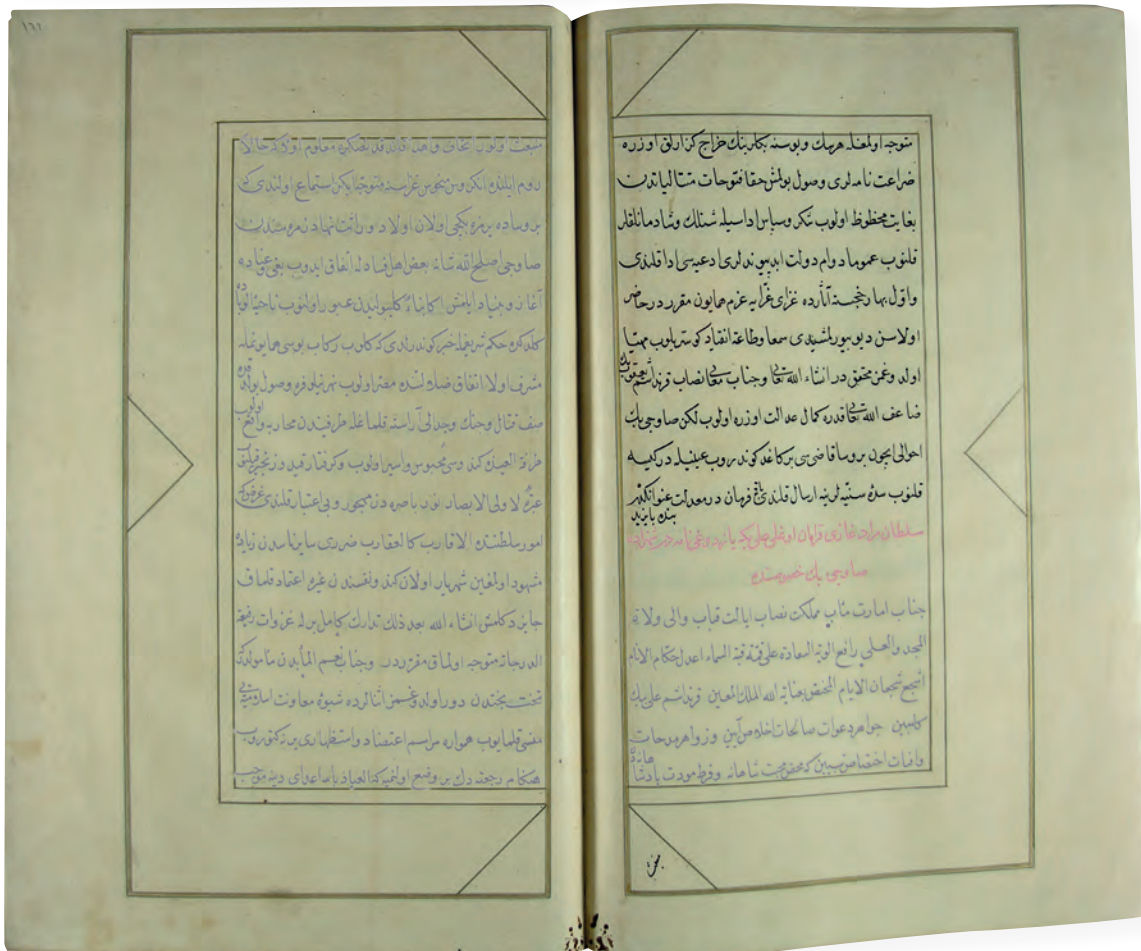 متوجه اولمغله هرسك و بوسنه بكلرينك خراج كزارلق اوزره
ضراعت نامه لرى وصول بولمش حقا فتوحات متتالياتدن
بغايت محظوظ اولوب شكر وسپاس اداسيله شنلك وشادمانلقلر
قلنوب عموما دوام دولت ابد پيوندلرى ادعيسى ادا قلندى
واول بهار خجسته آثارده غزاى غرايه عزم همايون مقرر در حاضر
اولاسن ديو بيورلمشيدى سمعا وطاعة انقياد كوستريلوب مهيا
اولدوغمز محقق در انشاء الله تعالى وجناب معالى نصاب قرنداشم يعقوب بك
ضاعف الله تعالى قدره كمال عدالت اوزره اولوب لكن صاوجى بك
احوالى ايچون بروسا قاضى سى بر كاغد كوندروب عينيله دركيسه
قلنوب سده سنيه لرينه ارسال قلندى باقى فرمان در معدلت عنوانكدر
بنده بايزيد
سلطان مراد غازى قرامان اوغلى على بكه يازدوغى نامه در
صاوجى بك خصوصنده
جناب امارت مآب مملكت نصاب ايالت قباب والى ولاة
المجد والعلى رافع الوية السعادة على قمة قبة السماء اعدل حكام الانام
اشجع شجعان الايام المحفوف بعناية الله الملك المعين قرنداشم على بك
جواهر دعوات صالحات اخلاص آيين و زواهر مدحات
وافيات اختصاص تبيين كه محض محبت شاهانه وفرط مودت پادشاهانه دن
منبعث اولوب اتحاف واهدا قلندقدنصكره معلوم اوله كه حالا
روم ايلنده ايكن غزاسنه متوجه ايكن استماع اولندى كه
بروساده يرمزه بكچى اولان اولاد
صاوجى اصلح الله شانه بعض اهل فساد له اتفاق ايدوب بغى وعناده
آغاز وبنياد ايلمش اكا بناء كليبوليدن عبور اولنوب
كلدكده حكم شريفله خبر كوندرلدى كه كلوب ركاب بوسى همايونمله
مشرف اولا اتفاق ضلالنده مصر اولوب وصول بولدقده
صف قتال وجنك وجدالى آراسته قلمغله طرفيندن محاربه واقع اولوب
طرفة العينده كندوسى محبوس واسير اولوب وكرفتار قيد وزنجير قلنوب
عبرة لاولى الابصار نور باصره دن مهجور وبى اعتبار قلندى
امور سلطنتده الاقارب كالعقارب ضررى سايرناسدن زياده
مشهود اولمغين شهريار اولان كندو نفسندن غيره اعتماد قلمق
جايز دكلمش انشاء الله بعد ذلك تدارك كامل برله غزوات رفيعة
الدرجاته متوجه اولماق مقرردر وجناب نعيم المآبدن مأمولدركه
تخت بختدن دور اولدوغمز اثنالرده شيوه معاونت
قلمايوب همواره مراسم اعتضاد واستظهارى يرنه كتوروب
هنكام رجعته دك بر وضع اولنميه كه العياذ بالله اعداى دينه موجب